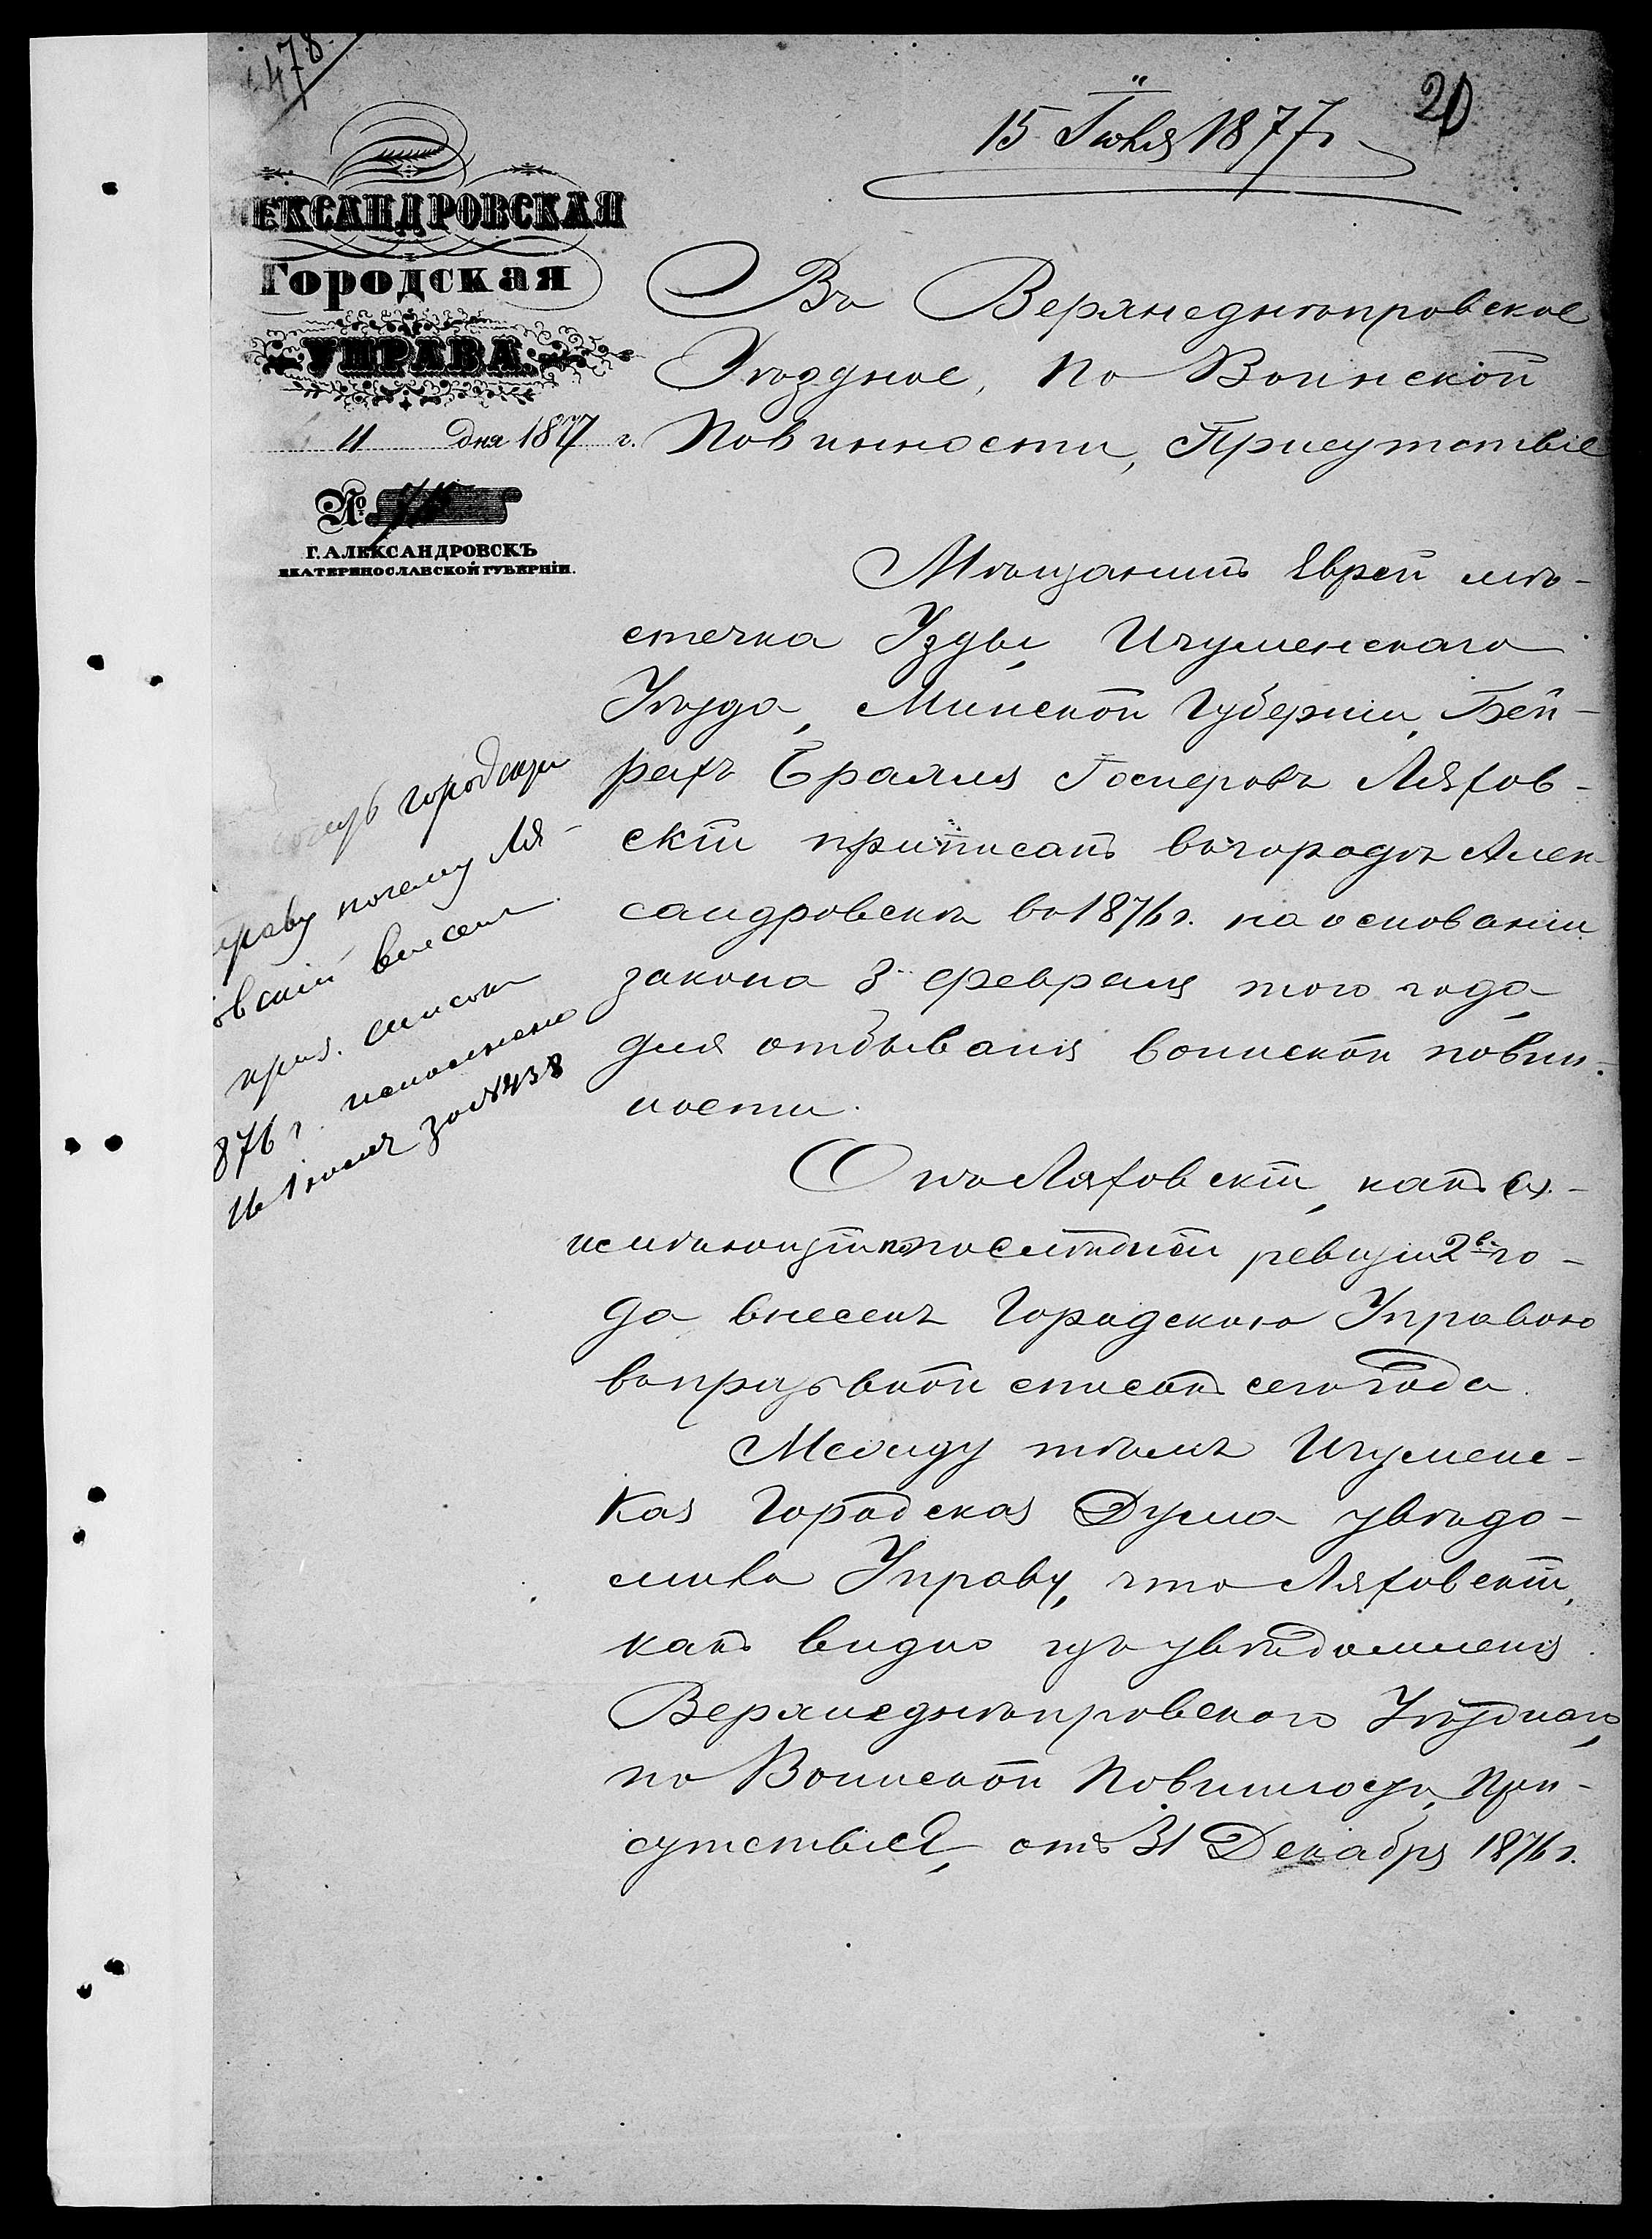 478.
15 Іюля 1877 г.
20
ЕКСАНДРОВСКАЯ
Городская
УПРАВА.
11 дня 1877 г.
№
Г. АЛЕКСАНДРОВСКЪ
ЕКАТЕРИНОСЛАВСКОЙ ГУБЕРНІИ.
Въ Верхнеднѣпровское
Уѣздное, по Воинской
Повинности, Присутствіе
Мѣщанинъ Еврей мѣ-
стечка Узды, Игуменскаго
Уѣзда, Минской Губерніи, Бей-
рахъ Ераллія Госперовъ Ляхов-
скій приписанъ въ городѣ Алек
сандровскѣ въ 1876 г. на основаніи
закона 3 февраля того года,
для отбыванія воинской повин-
ности.
Онъ Ляховскій, какъ
исчисляющійся по послѣдней ревизіи 2 го-
да внесенъ Городскою Управою
въ призывной списокъ сего года.
Между тѣмъ Игуменс-
кая Городская Дума увѣдо-
мила Управу, что Ляховскій,
какъ видно изъ увѣдомленія
Верхнеднѣпровского Уѣзднаго,
по Воинской Повинности, При-
сутствія, отъ 31 Декабря 1876 г.
городскую
управу почему Ля-
овскій внесенъ
приз. списокъ
876 г. исполнено
16 Іюля за № 438